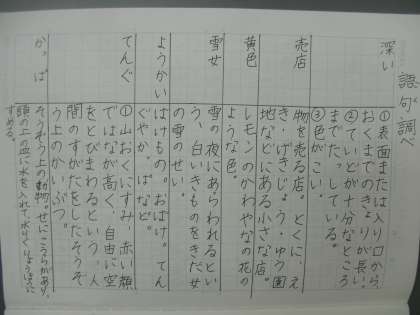 語句調べ
深い
①表面または入り口から、
おくまでのきょりが長い。
②ていどが十分なところ
までたっしている。
③色がこい。
売店
物を売る店。とくに、え
き・げきじょう・ゆう園
地などにある小さな店。
黄色
レモンのかわやなの花の
ような色。
雪女
雪の夜にあらわれるとい
う、白いきものをきた女
の雪のせい。
ようかい
ばけもの。おばけ。てん
ぐやかっぱなど。
てんぐ
①山おくにすみ、赤い顔
ではなが高く、自由に空
をとびまわるという、人
間のすがたをしたそうぞ
う上のかいぶつ。
かっぱ
そうぞう上の動物。せにこうらがあり、
頭の上の皿に水を入れて、水りくりょうほうに
すめる。